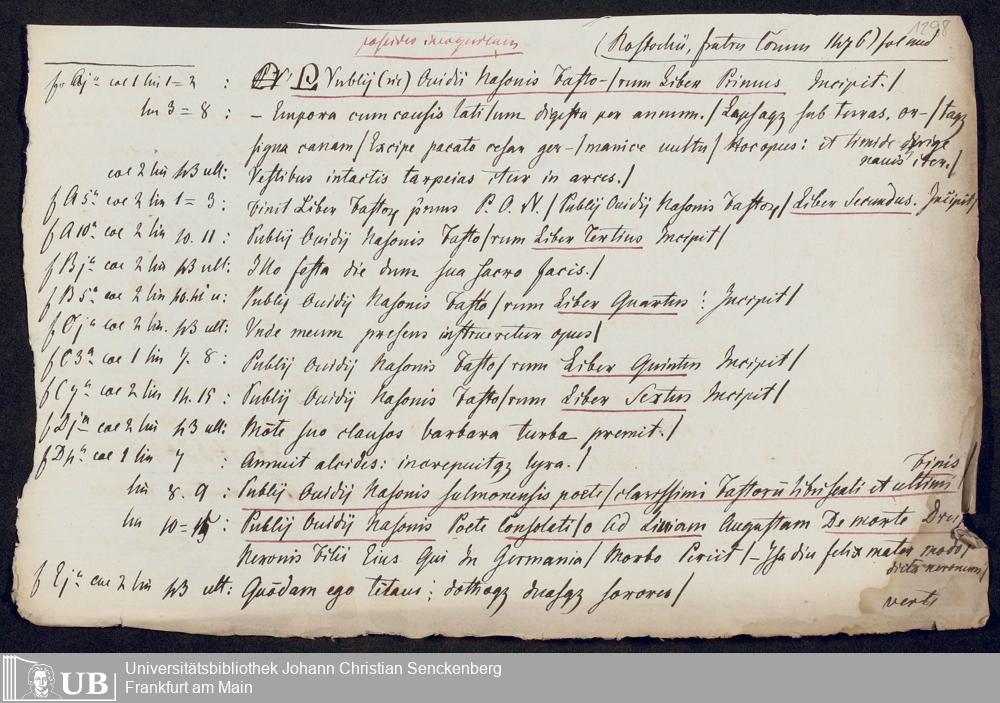 1298
(Rostochii, fratres Comm 1476) fol
f Aj a col 1 lin 1=2 : P Vublij (sic) Ouidij Nasonis Fasto-/rum Liber Primus Incipit./
lin 3=8 : – Empora cum causis lati/um digesta per annum./ Lapsaqz sub terras. or-/taqz
signa canam/ Excipe pacato cesar ger-/manice uultu/ Hocopus: et timide dirige
nauis iter./
col 2 lin 43 ult: Vestibus intactis tarpeias itur in arces./
f A5a col 2 lin 1=3 : Finit Liber Fastoꝝ prīmus P. O. N./ Publij Ouidij Nasonis Fastoꝝ/ Liber Secundus. Incipit/
f A10a col 2 lin 10. 11 : Publij Ouidij Nasonis Fasto/rum Liber Tertius Incipit/
f Bja col 2 lin 43 ult: Illo festa die dum sua sacro facis./
f B5a col 2 lin 40. 41 u: Publij Ouidij Nasonis Fasto/rum Liber Quartus: Incipit/
f Cja col 2 lin. 43 ult: Vnde meum presens instrueretur opus/
f C3a col 1 lin 7. 8 : Publij Ouidij Nasonis Fasto/rum Liber Quintus Incipit/
f C7a col 2 lin 14. 15 : Publij Ouidij Nasonis Fasto/rum Liber Sextus Incipit/
f Dja col 2 lin 43 ult: Mōte suo clausos barbara turba premit./
f D4a col 1 lin 7 : Annuit alcides: increpuitqz lyra./
Finis/
lin 8. 9 : Publij Ouidij Nasonis sulmonensis poete/clarissimi Fastorū libri seati et ultimi
lin 10=15 : Publij Ouidij Nasonis Poete Consolati/o Ad Liuiam Augustam De morte Drusi
Neronis Filij Eius Qui In Germania/ Morbo Periit/ – Isa diu felix mater modo/
dicta neronum/
f Eja col 2 lin 43 ult: Quōdam ego titaus: dothoqz duasqz sorores/
verte
UB
Universitätsbibliothek Johann Christian Senckenberg
Frankfurt am Main